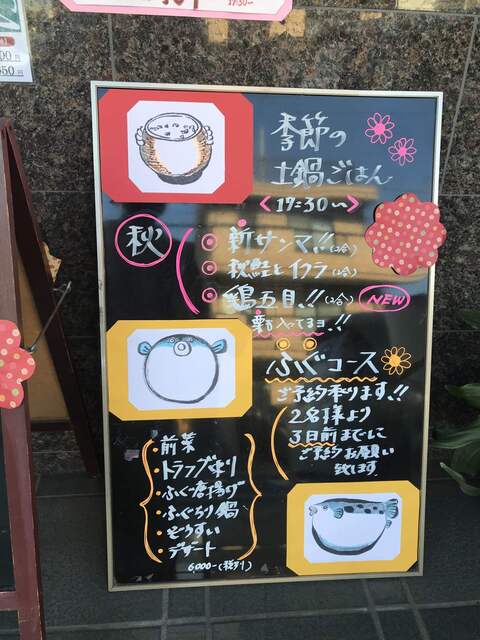 19:30〜
季節の
土鍋ごはん
<19=30〜>
秋
新サンマ!!(2合)
秋鮭とイクラ(2合)
鶏五目!!(2合) NEW
栗も入ってるヨ!!
ふぐコース
ご予約承ります!!
2名様より
3日前までに
ご予約お願い
致します
・前菜
・トラフグ造り
・ふぐ唐揚げ
・ふぐちり鍋
・ぞうすい
・デザート
6,000-(税別)